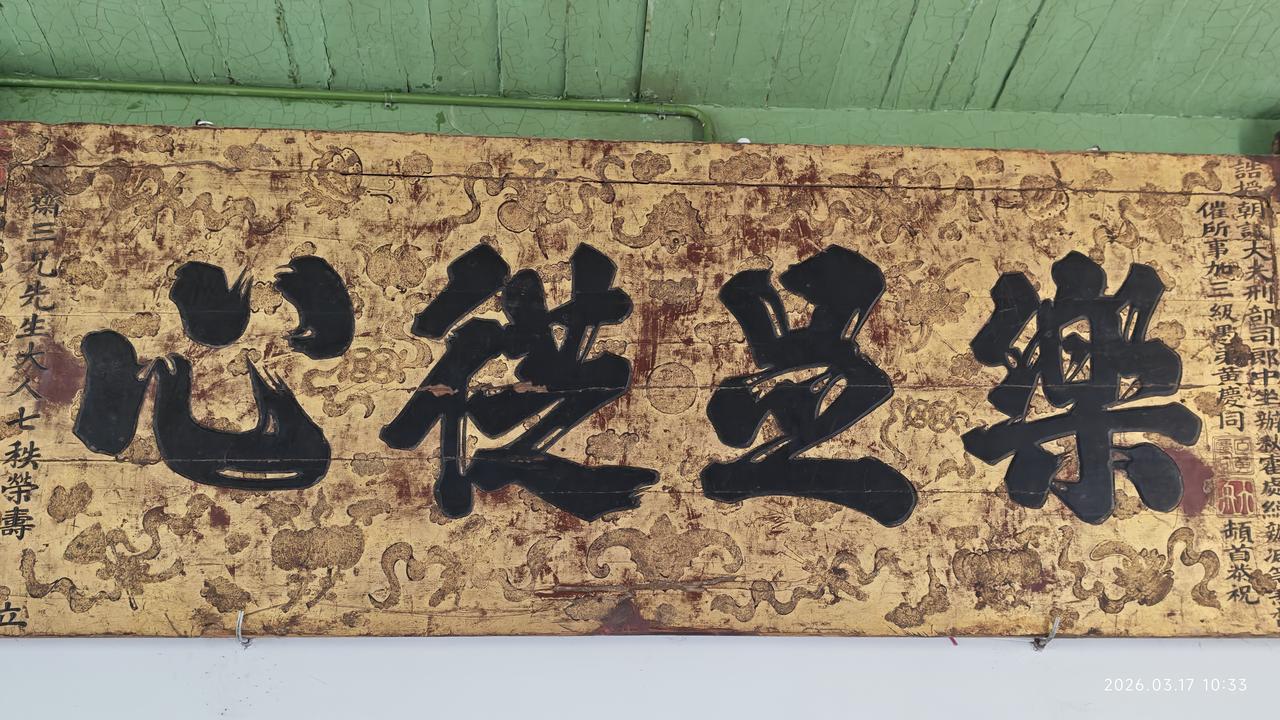 樂是從心
誥授朝議大夫刑部司郎中坐辦秋審處總辦
催所事加三級愚弟黃慶同頓首恭祝
齋三兄先生大人七秩榮壽
立
2026.03.17 10:33